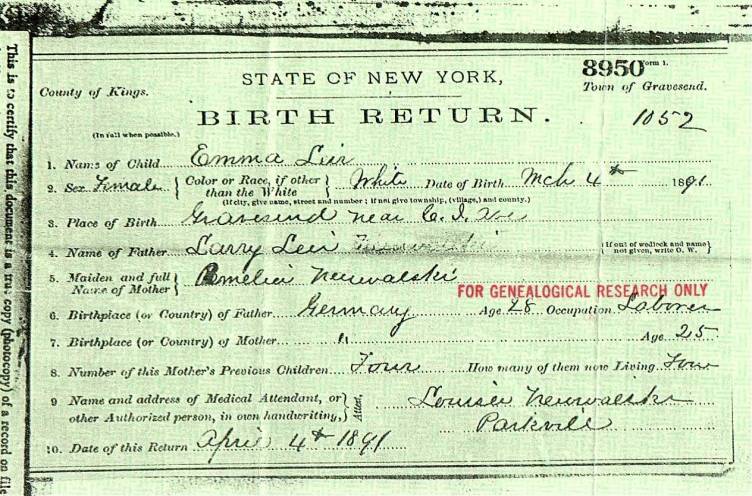 This is to certify that this document is a true copy (photocopy) of a record on file
8950 Form 1.
STATE OF NEW YORK,
County of Kings. Town of Gravesend.
BIRTH RETURN. 1052
(In full when possible.)
1. Name of Child Emma Leir
2. Sex Female { Color or Race, if other than the White } White Date of Birth Mch 4th 1891
(If city, give name, street and number; if not give township, (village,) and county.)
3. Place of Birth Gravesend near C. I. Ave
4. Name of Father Larry Leir { If out of wedlock and name not given, write O. W. }
5. Maiden and full Name of Mother } Amelia Neuwalski
FOR GENEALOGICAL RESEARCH ONLY
6. Birthplace (or Country) of Father Germany Age 28 Occupation Laborer
7. Birthplace (or Country) of Mother " Age 25
8. Number of this Mother's Previous Children Four How many of them now Living Four
9 Name and address of Medical Attendant, or other Authorized person, in own handwriting, } Attest, Louise Neuwalski
Parkville
10. Date of this Return April 4th 1891